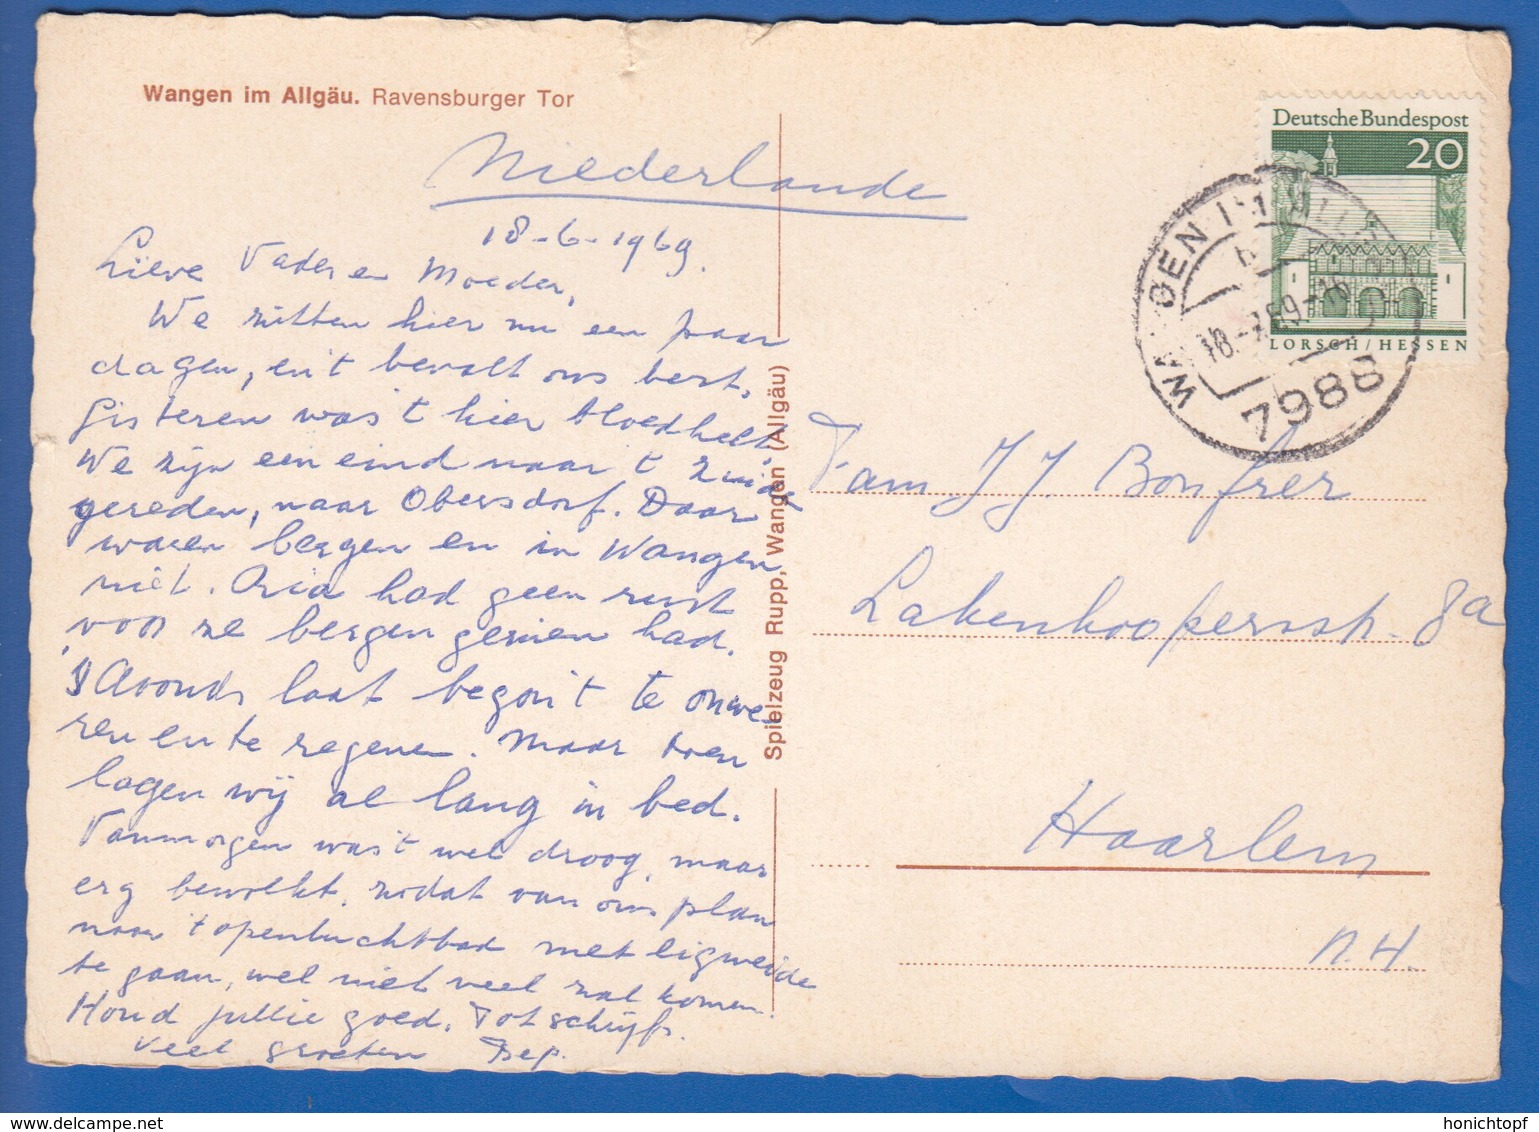 Wangen im Allgäu. Ravensburger Tor
Niederlande
18-6-1969.
Lieve Vader en Moeder,
We zitten hier nu een paar
dagen, en 't bevalt ons best.
Gisteren was 't hier bloedheet
We zijn een eind naar 't zuiden
gereden, naar Obersdorf. Daar
waren bergen en in Wangen
niet. Ria had geen rust
voor ze bergen gezien had.
's Avonds laat begon 't te onwe-
ren en te regenen. Maar toen
lagen wij al lang in bed.
Vanmorgen was 't wel droog, maar
erg bewolkt. zodat van ons plan
naar 't openluchtbad met ligweide
te gaan, wel niet veel zal komen.
Houd jullie goed. Tot schrijfs.
Veel groeten
Spielzeug Rupp, Wangen (Allgäu)
Deutsche Bundespost
20
LORSCH/HESSEN
WANGEN IM ALLGÄU
18.-7.69.-16
7988
Fam JJ Bonfrer
Lakenkoopersstr. 8a
Haarlem
N.H.
delcampe.net
honichtopf